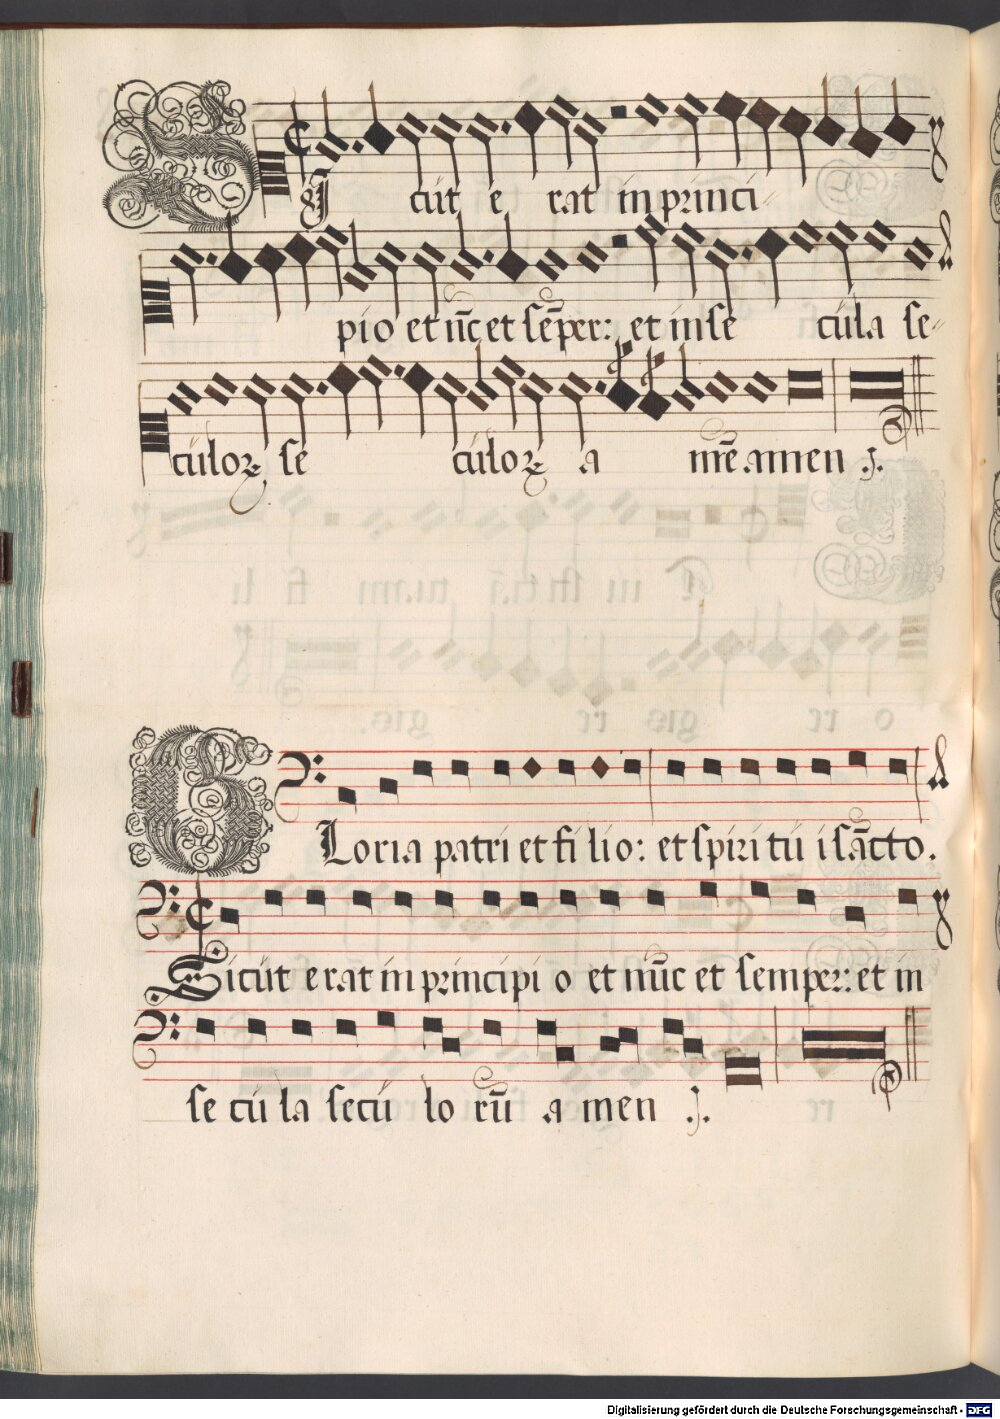 SIcut erat in princi-
pio et nūc et sēper: et in se cula se-
culoꝝ se culoꝝ a mē amen .
GLoria patri et filio: et spiritui sācto.
Sicut erat in principio et nūc et semper: et in
secula seculorū amen .
Digitalisierung gefördert durch die Deutsche Forschungsgemeinschaft - DFG